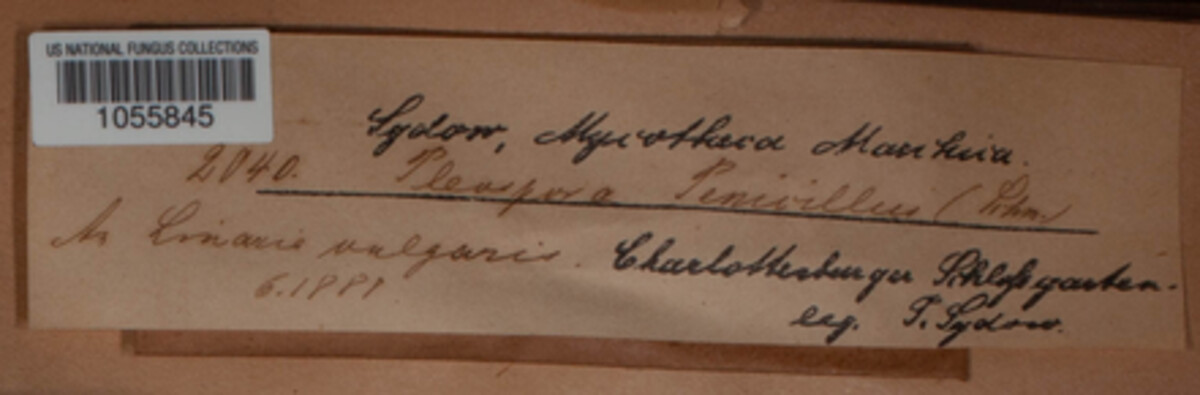 US NATIONAL FUNGUS COLLECTIONS
1055845
Sydow, Mycotheca Marchica.
2040. Pleospora Penicillus (Schm.)
An Linaria vulgaris. Charlottenburger Schloßgarten.
6.1888 leg. P. Sydow.